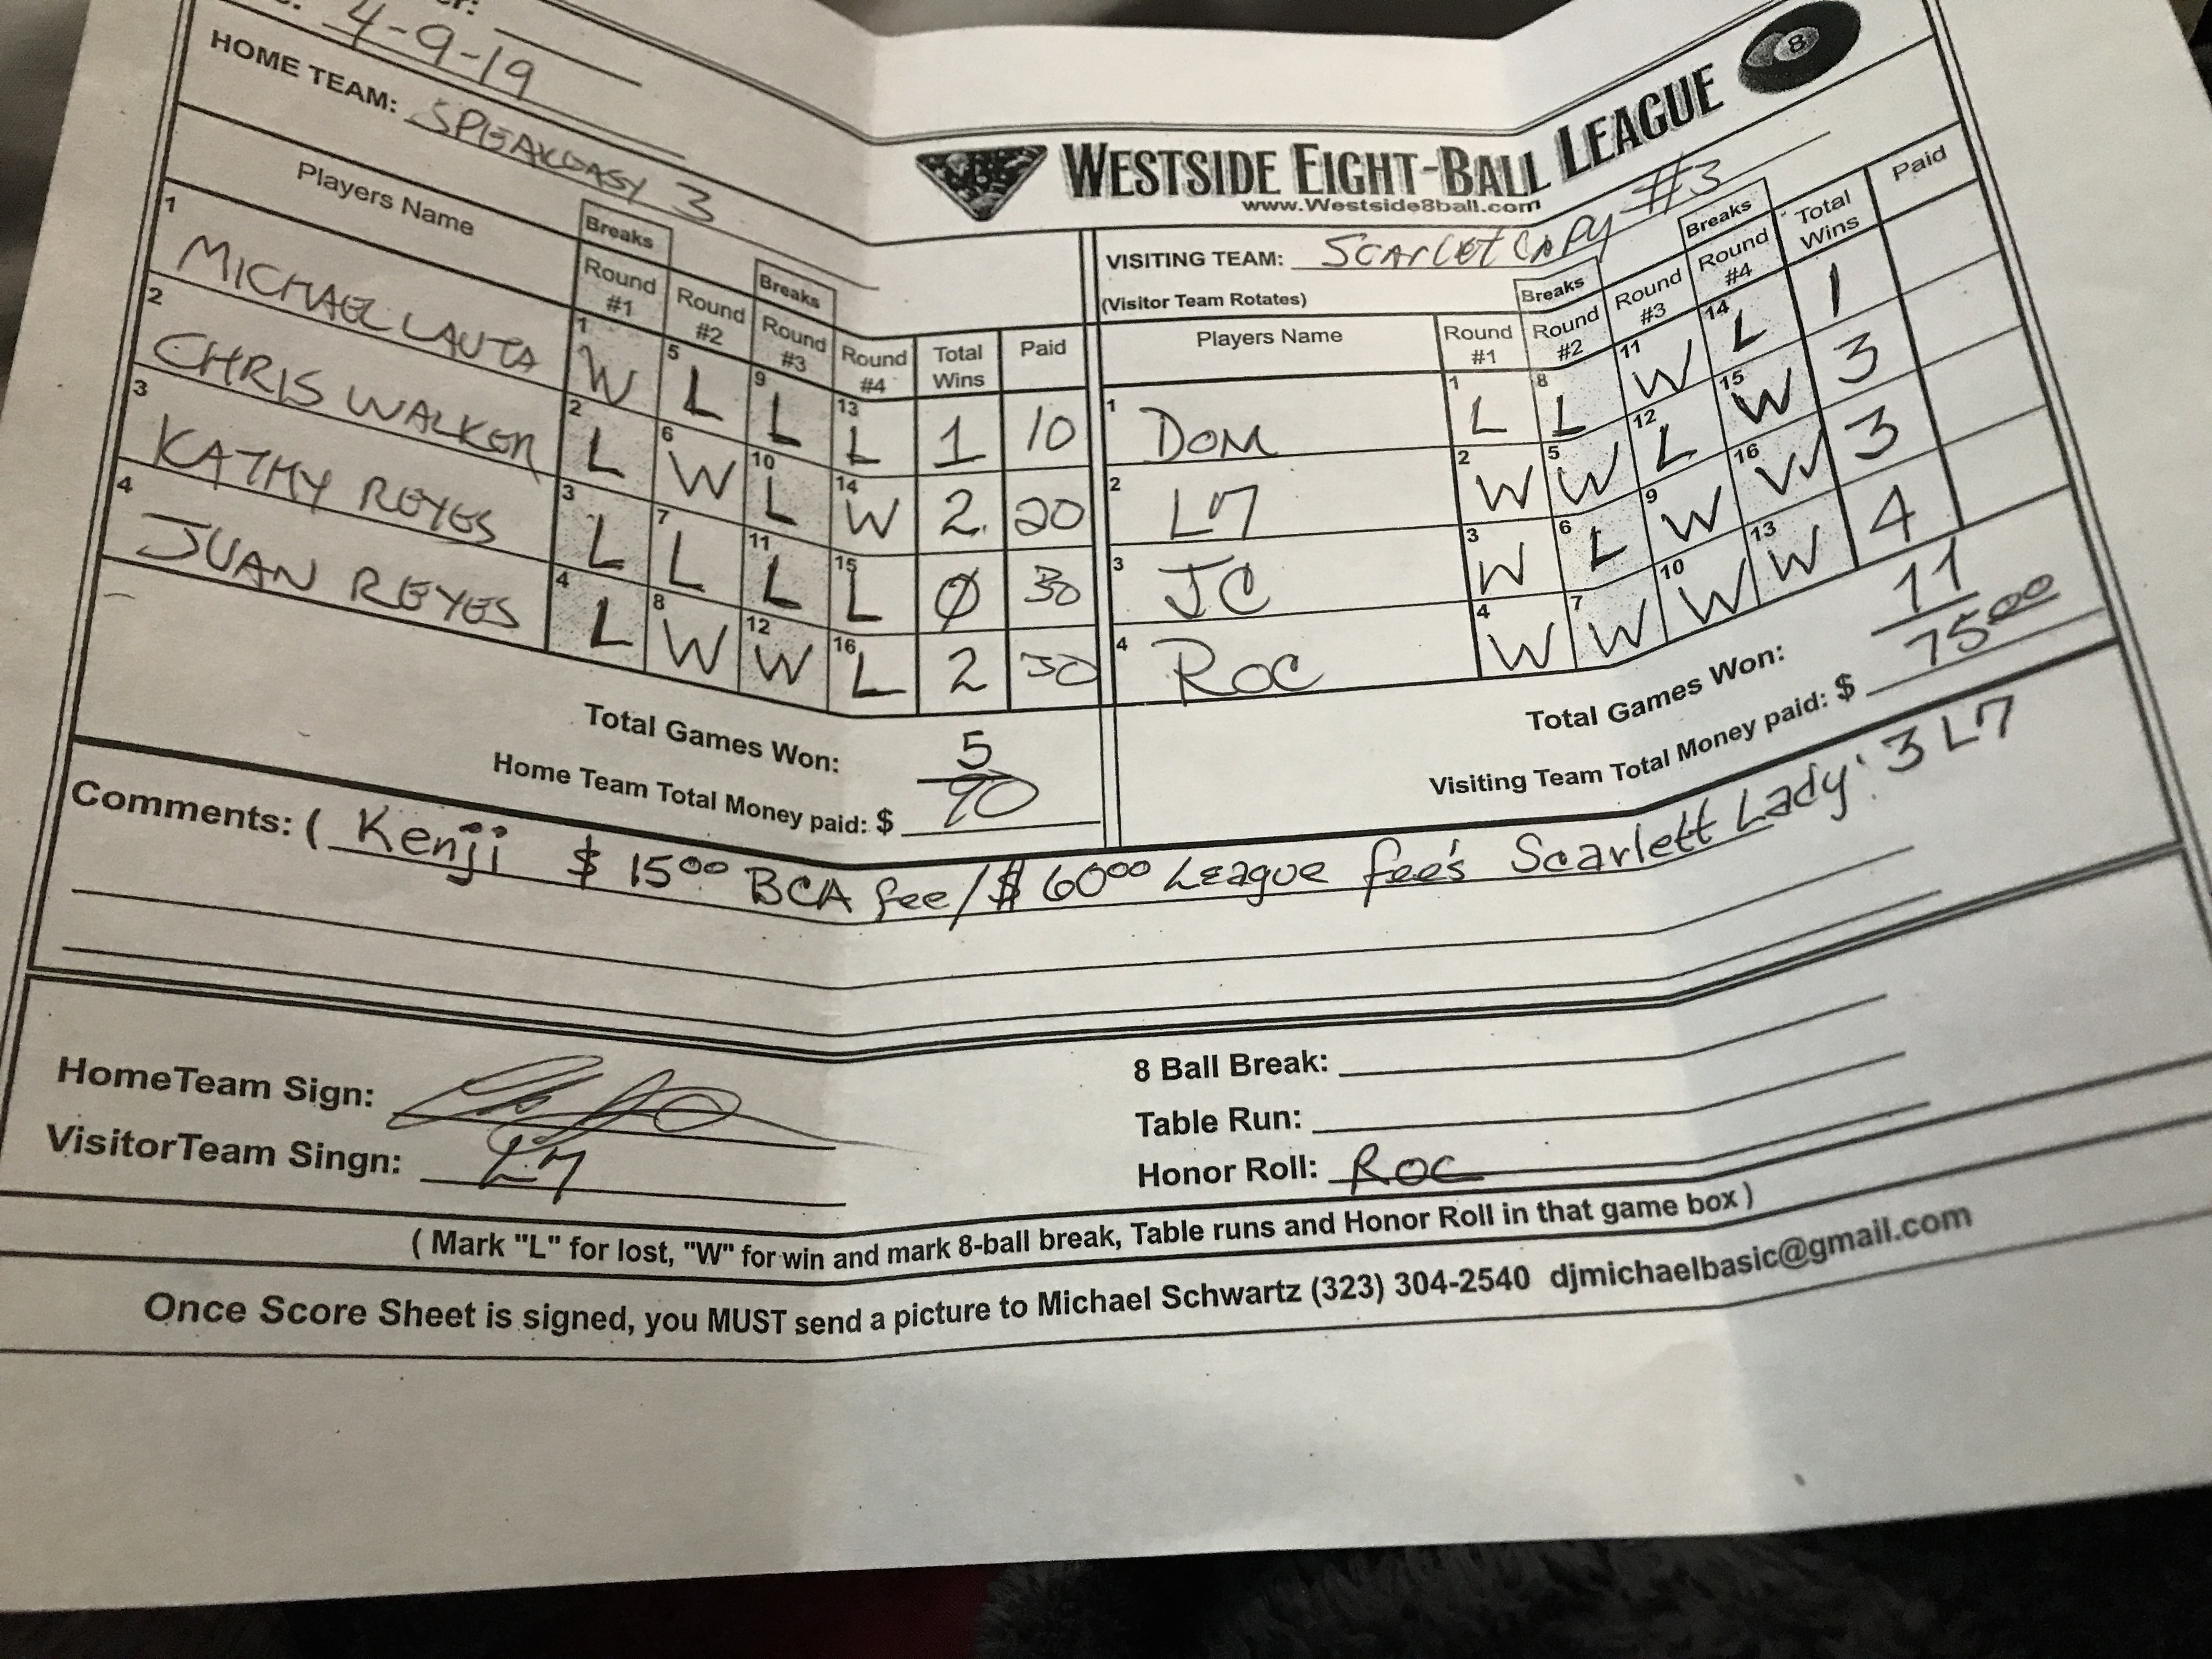 4-9-19
HOME TEAM: SPEAKEASY 3
WESTSIDE EIGHT-BALL LEAGUE
8
www.Westside8ball.com
VISITING TEAM: Scarlet LADY #3
(Visitor Team Rotates)
Players Name Breaks Round #1 Round #2 Breaks Round #3 Round #4 Total Wins Paid
1 MICHAEL LAUTA 1 W 5 L 9 L 13 L 1 10
2 CHRIS WALKER 2 L 6 W 10 L 14 W 2 20
3 KATHY REYES 3 L 7 L 11 L 15 L Ø 30
4 JUAN REYES 4 L 8 W 12 W 16 L 2 30
Total Games Won: 5
Home Team Total Money paid: $ 90
Players Name Round #1 Breaks Round #2 Round #3 Breaks Round #4 Total Wins Paid
1 DOM 1 L 8 L 11 W 14 L 1
2 L7 2 W 5 W 12 L 15 W 3
3 JC 3 W 6 L 9 W 16 W 3
4 ROC 4 W 7 W 10 W 13 W 4
Total Games Won: 11
Visiting Team Total Money paid: $ 7500
Comments: ( Kenji $ 1500 BCA fee/$ 6000 League fee's Scarlett Lady' 3 L7
HomeTeam Sign:
VisitorTeam Singn: L7
8 Ball Break:
Table Run:
Honor Roll: ROC
( Mark "L" for lost, "W" for win and mark 8-ball break, Table runs and Honor Roll in that game box )
Once Score Sheet is signed, you MUST send a picture to Michael Schwartz (323) 304-2540 djmichaelbasic@gmail.com